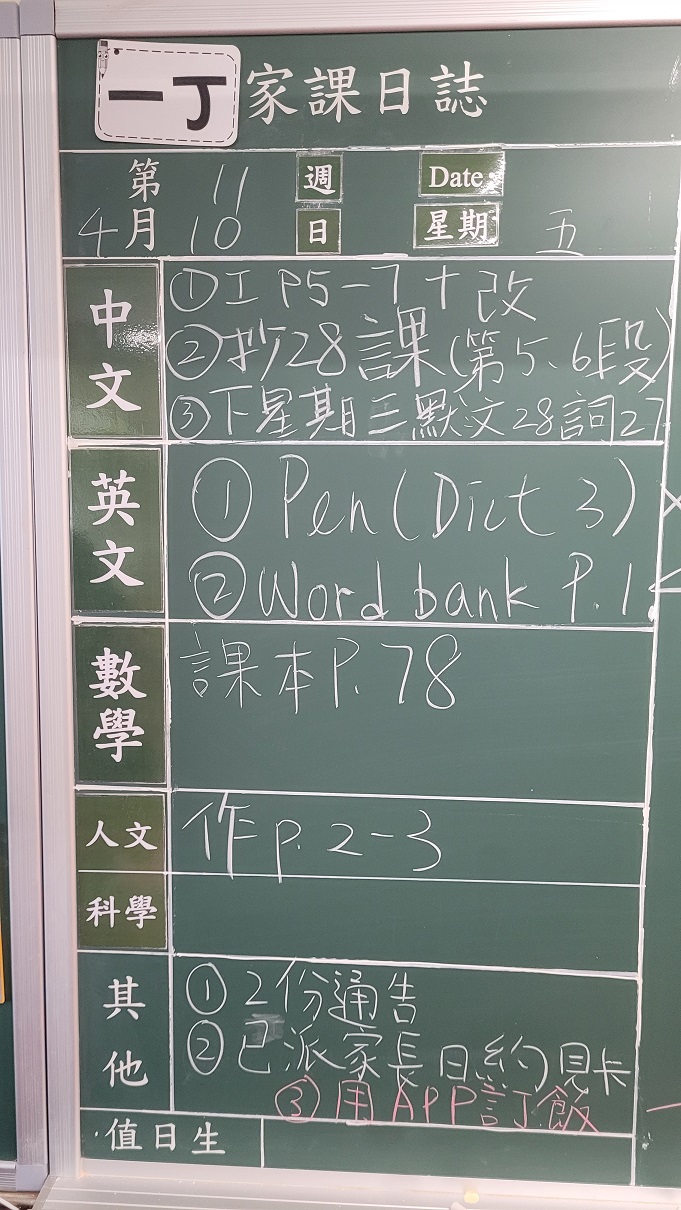 一丁 家課日誌
第 11 週 Date
4月 10 日 星期 五
中文
①工 P5-7+改
②抄28課(第5、6段)
③下星期三默汶28詞27
英文
① Pen (Dict 3)
② Word bank P.1
數學
課本P.78
人文
作P.2-3
科學
其他
①2份通告
②已派家長日約見卡
③用APP訂飯
值日生